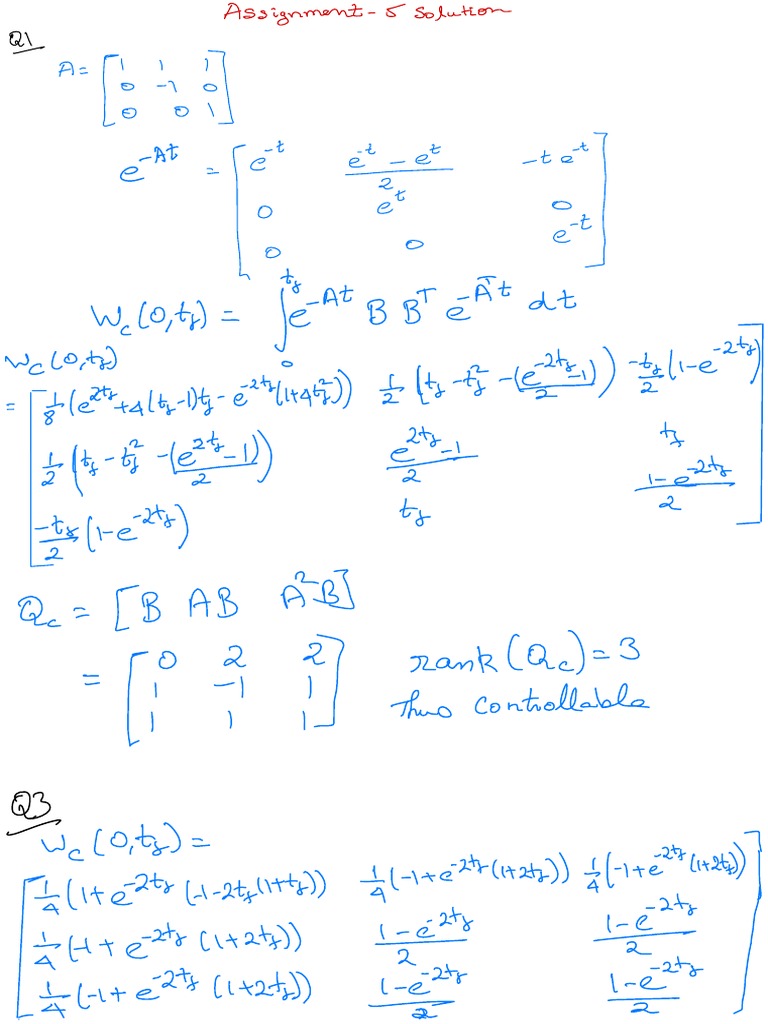 Assignment-5 Solution
Q1
A = [ 1 1 1
0 -1 0
0 0 1 ]
e^{-At} = [ e^{-t} (e^{-t} - e^{t})/2 -t e^{-t}
0 e^{t} 0
0 0 e^{-t} ]
W_c(0,t_f) = ∫_0^{t_f} e^{-At} B B^T e^{-A^T t} dt
W_c(0,t_f)
= [ 1/8 (e^{2t_f} + 4(t_f-1)t_f - e^{-2t_f}(1+4t_f^2)) 1/2 (t_f - t_f^2 - (e^{-2t_f}-1)/2) -t_f/2 (1-e^{-2t_f})
1/2 (t_f - t_f^2 - (e^{2t_f}-1)/2) (e^{2t_f}-1)/2 t_f
-t_f/2 (1-e^{-2t_f}) t_f (1-e^{-2t_f})/2 ]
Q_c = [B AB A^2B]
= [ 0 2 2
1 -1 1
1 1 1 ] rank(Q_c) = 3
Thus controllable
Q3
W_c(0,t_f) =
[ 1/4 (1+e^{-2t_f}(-1-2t_f(1+t_f))) 1/4 (-1+e^{-2t_f}(1+2t_f)) 1/4 (-1+e^{-2t_f}(1+2t_f))
1/4 (-1+e^{-2t_f}(1+2t_f)) (1-e^{-2t_f})/2 (1-e^{-2t_f})/2
1/4 (-1+e^{-2t_f}(1+2t_f)) (1-e^{-2t_f})/2 (1-e^{-2t_f})/2 ]